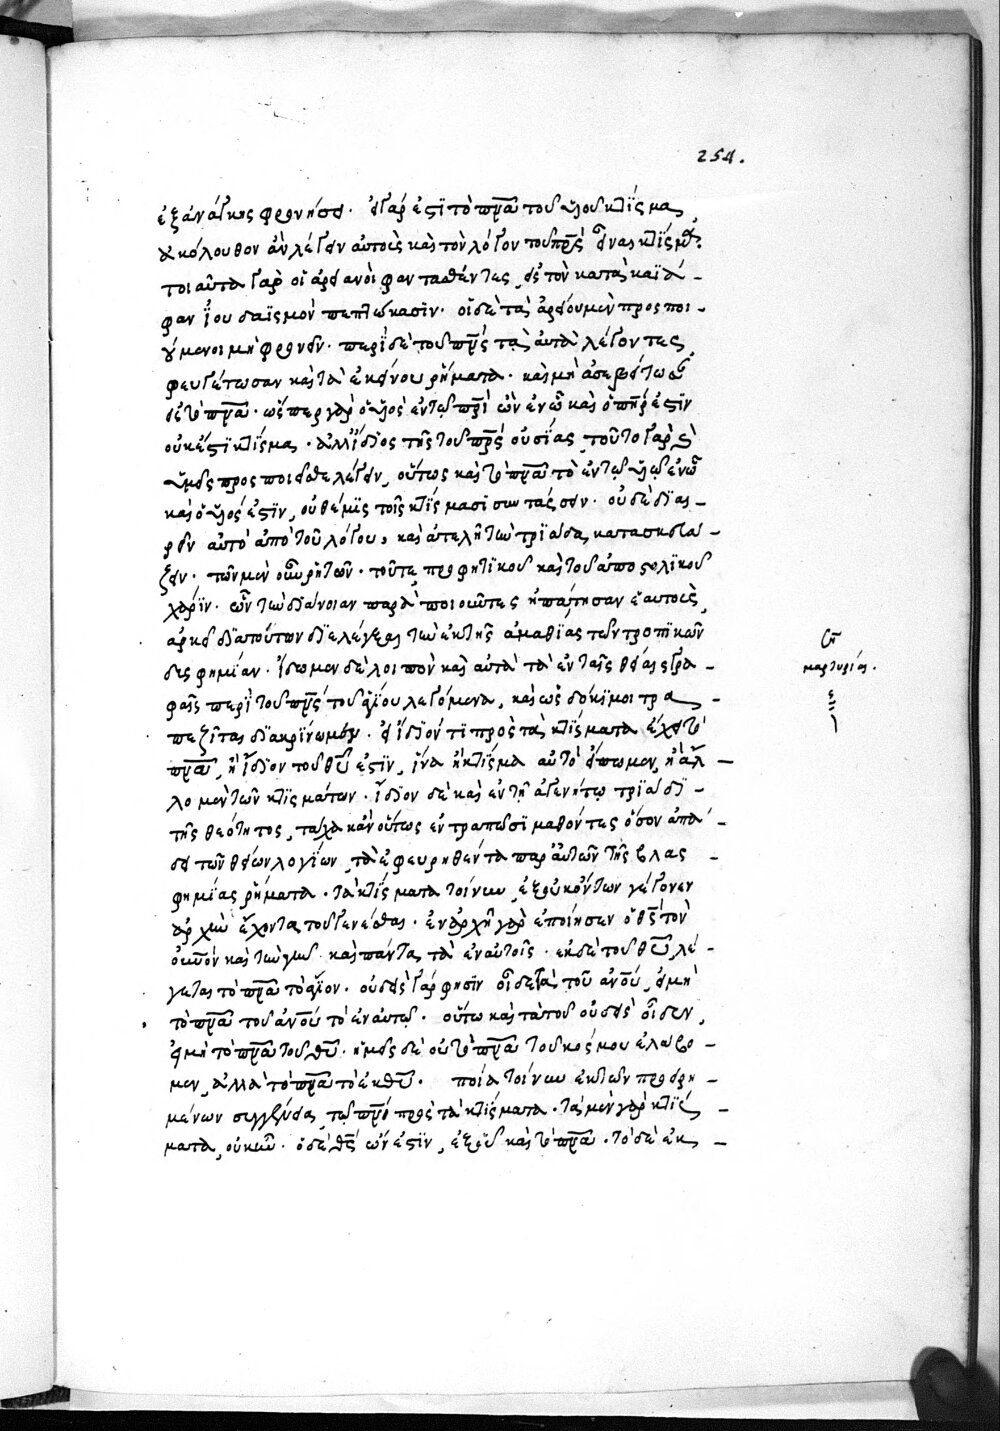 ἐξ ἀνάγκης φρονῆσαι· εἰ γάρ ἐστὶ τὸ πν̅α τοῦ υἱοῦ κτίσμα,
ἀκόλουθον ἂν λέγειν αὐτοὺς καὶ τὸν λόγον τοῦ πρ̅ς εἶναι κτίσμα.
τοιαῦτα γὰρ οἱ ἀρειανοὶ φαντασθέντες, εἰς τὸν κατὰ καϊά-
φαν ἰουδαϊσμὸν πεπτώκασιν. οἱ δὲ τὰ ἀρείου μὲν προσποι-
ούμενοι μὴ φρονεῖν· περὶ δὲ τοῦ πν̅ς τὰ αὐτὰ λέγοντες,
φευγέτωσαν καὶ τὰ ἐκείνου ῥήματα· καὶ μὴ ἀσεβείτωσαν
εἰς τὸ πν̅α· ὥσπερ γὰρ ὁ υἱὸς ἐν τῷ πρ̅ὶ ὢν ἐν ᾧ καὶ ὁ πη̅ρ ἐστὶν
οὐκ ἐστὶ κτίσμα· ἀλλ' ἴδιος τῆς τοῦ πρ̅ς οὐσίας τοῦτο γὰρ καὶ
ὑμεῖς προσποιεῖσθε λέγειν, οὕτως καὶ τὸ πν̅α τὸ ἐν τῷ υἱῷ ἐν ᾧ
καὶ ὁ υἱός ἐστιν, οὐ θέμις τοῖς κτίσμασι συντάσσειν· οὐδὲ διαι-
ρεῖν αὐτὸ ἀπὸ τοῦ λόγου, καὶ ἀτελῆ τὴν τριάδα, κατασκευά-
ζειν· τῶν μὲν οὖν ῥητῶν· τοῦ τε προφητικοῦ καὶ τοῦ ἀποστολικοῦ
χάριν· ὧν τὴν διάνοιαν παραποιοῦντες ἠπάτησαν ἑαυτοὺς,
ἀρκεῖ διὰ τούτων διελέγξαι τὴν ἐκ τῆς ἀμαθίας τῶν τροπικῶν
δυσφημίαν· ἴδωμεν δὲ λοιπὸν καὶ αὐτὰ τὰ ἐν ταῖς θείαις γρα-
φαῖς περὶ τοῦ πν̅ς τοῦ ἁγίου λεγόμενα, καὶ ὡς δόκιμοι τρα-
πεζῖται διακρίνωμεν· εἰ ἴδιόν τι πρὸς τὰ κτίσματα ἔχει τὸ
πν̅α, ἢ ἴδιον τοῦ θ̅υ ἐστὶν, ἵνα ἢ κτίσμα αὐτὸ εἴπωμεν, ἢ ἄλ-
λο μὲν τῶν κτισμάτων· ἴδιον δὲ καὶ ἓν τῇ ἀγενήτῳ τριάδι
τῆς θεότητος, τάχα κἂν οὕτως ἐντραπῶσι μαθόντες ὅσον ἀπᾴ-
δει τῶν θείων λογίων, τὰ ἐφευρηθέντα παρ' αὐτῶν τῆς βλασ-
φημίας ῥήματα· τὰ κτίσματα τοίνυν, ἐξ οὐκ ὄντων γέγονεν
ἀρχὴν ἔχοντα τοῦ γενέσθαι· ἐν ἀρχῇ γὰρ ἐποίησεν ὁ θ̅ς τὸν
οὐν̅ον καὶ τὴν γῆν· καὶ πάντα τὰ ἐν αὐτοῖς· ἐκ δὲ τοῦ θ̅υ λέ-
γεται τὸ πν̅α τὸ ἅγιον· οὐδεὶς γάρ φησὶν οἶδε τὰ τοῦ ἀν̅ου, εἰ μὴ
τὸ πν̅α τοῦ ἀν̅ου τὸ ἐν αὐτῷ· οὕτω καὶ τὰ τοῦ θ̅υ οὐδεὶς οἶδεν,
εἰ μὴ τὸ πν̅α τοῦ θ̅υ· ἡμεῖς δὲ οὐ τὸ πν̅α τοῦ κόσμου ἐλάβο-
μεν, ἀλλὰ τὸ πν̅α τὸ ἐκ θ̅υ· ποία τοίνυν ἐκ τῶν προειρη-
μένων συγγένεια, τῷ πν̅ι πρὸς τὰ κτίσματα· τὰ μὲν γὰρ κτίσ-
ματα, οὐκ ἦν· ὁ δὲ θ̅ς ὤν ἐστιν, ἐξ οὗ καὶ τὸ πν̅α· τὸ δὲ ἐκ